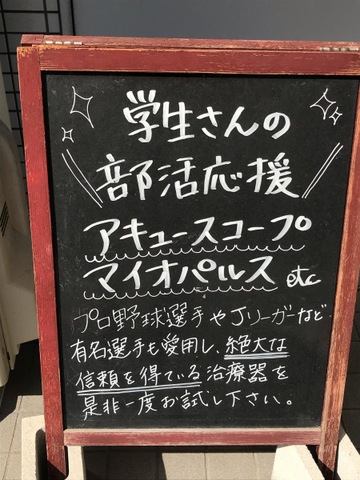 学生さんの
部活応援
アキュースコープ
マイオパルス etc
プロ野球選手やJリーガーなど
有名選手も愛用し、絶大な
信頼を得ている治療器を
是非一度お試し下さい。